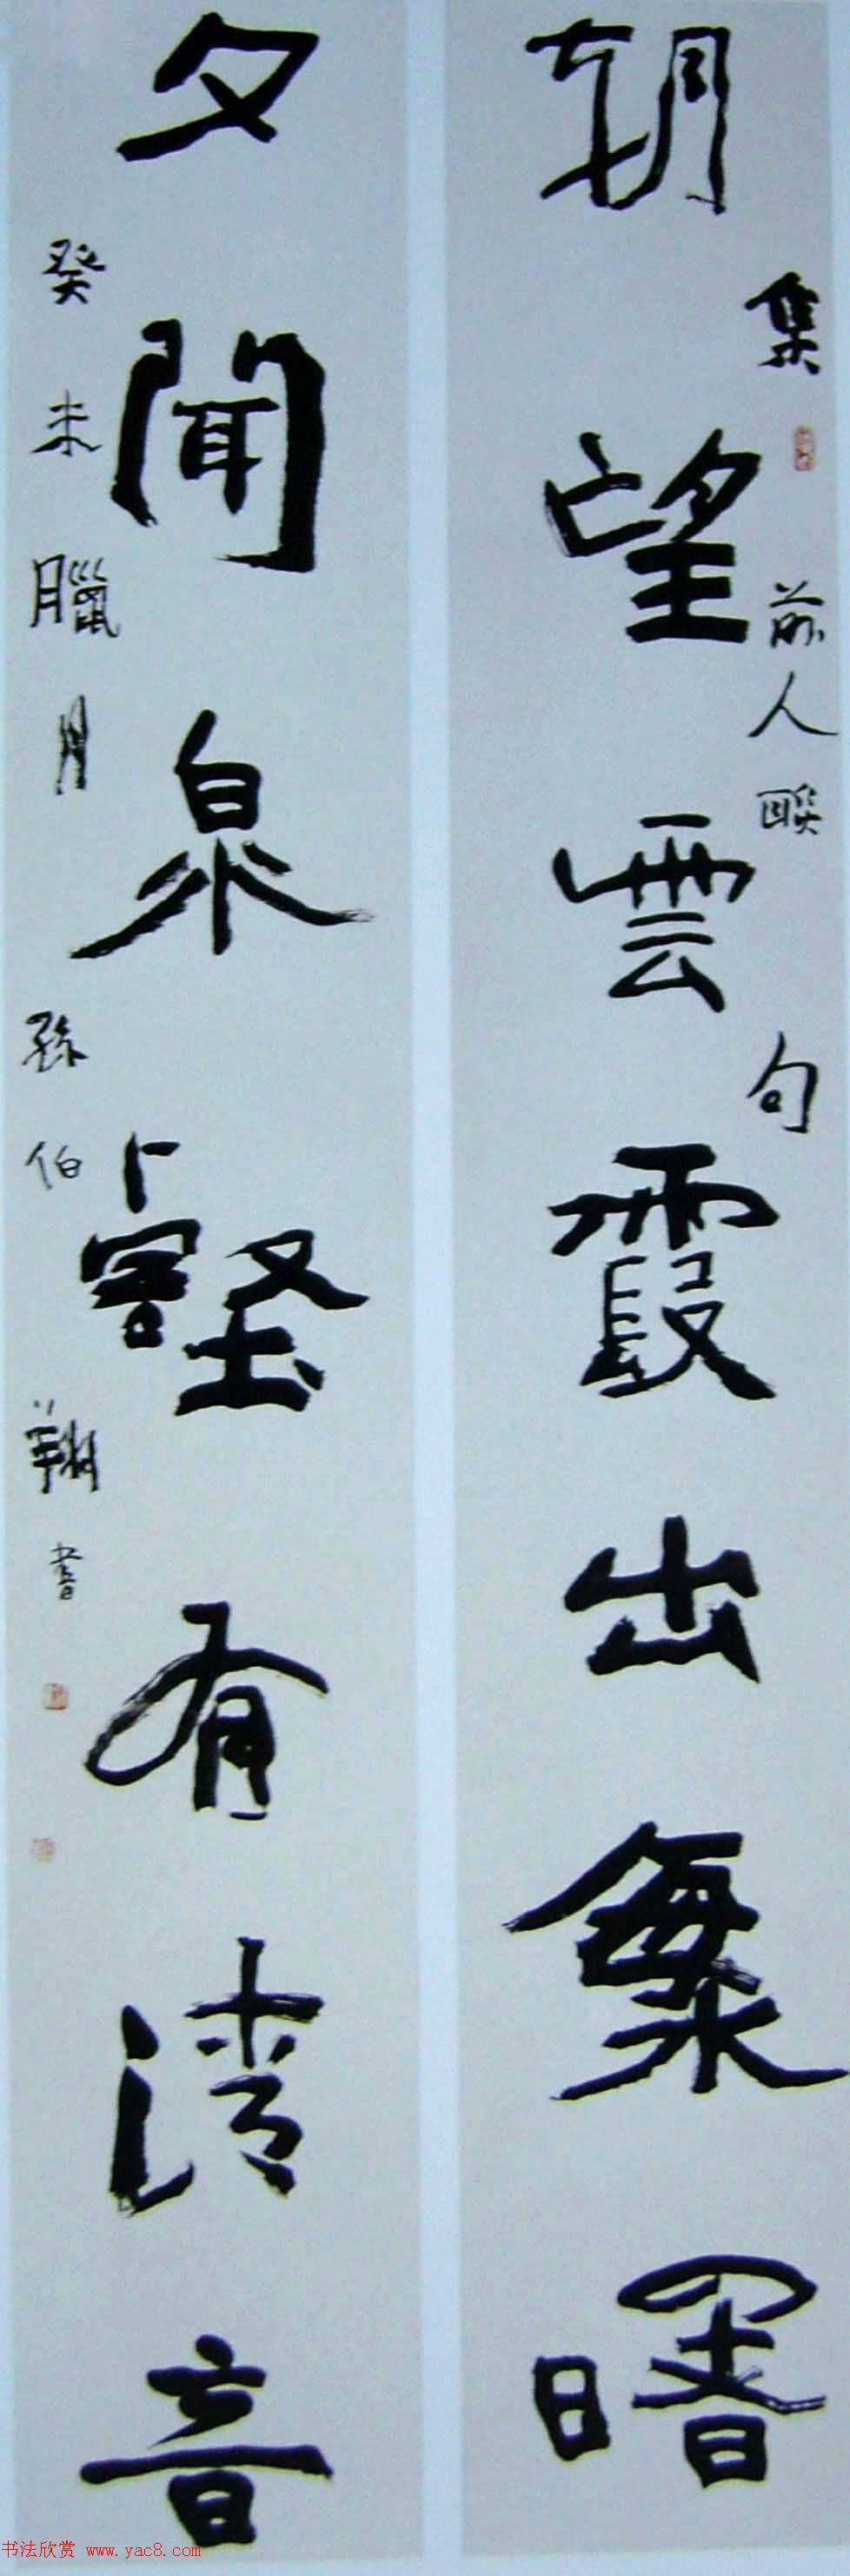 朝望雲霞出無曙
集前人聯句
夕聞泉壑有清音
癸未臘月孫伯翔書
书法欣赏 www.yac8.com